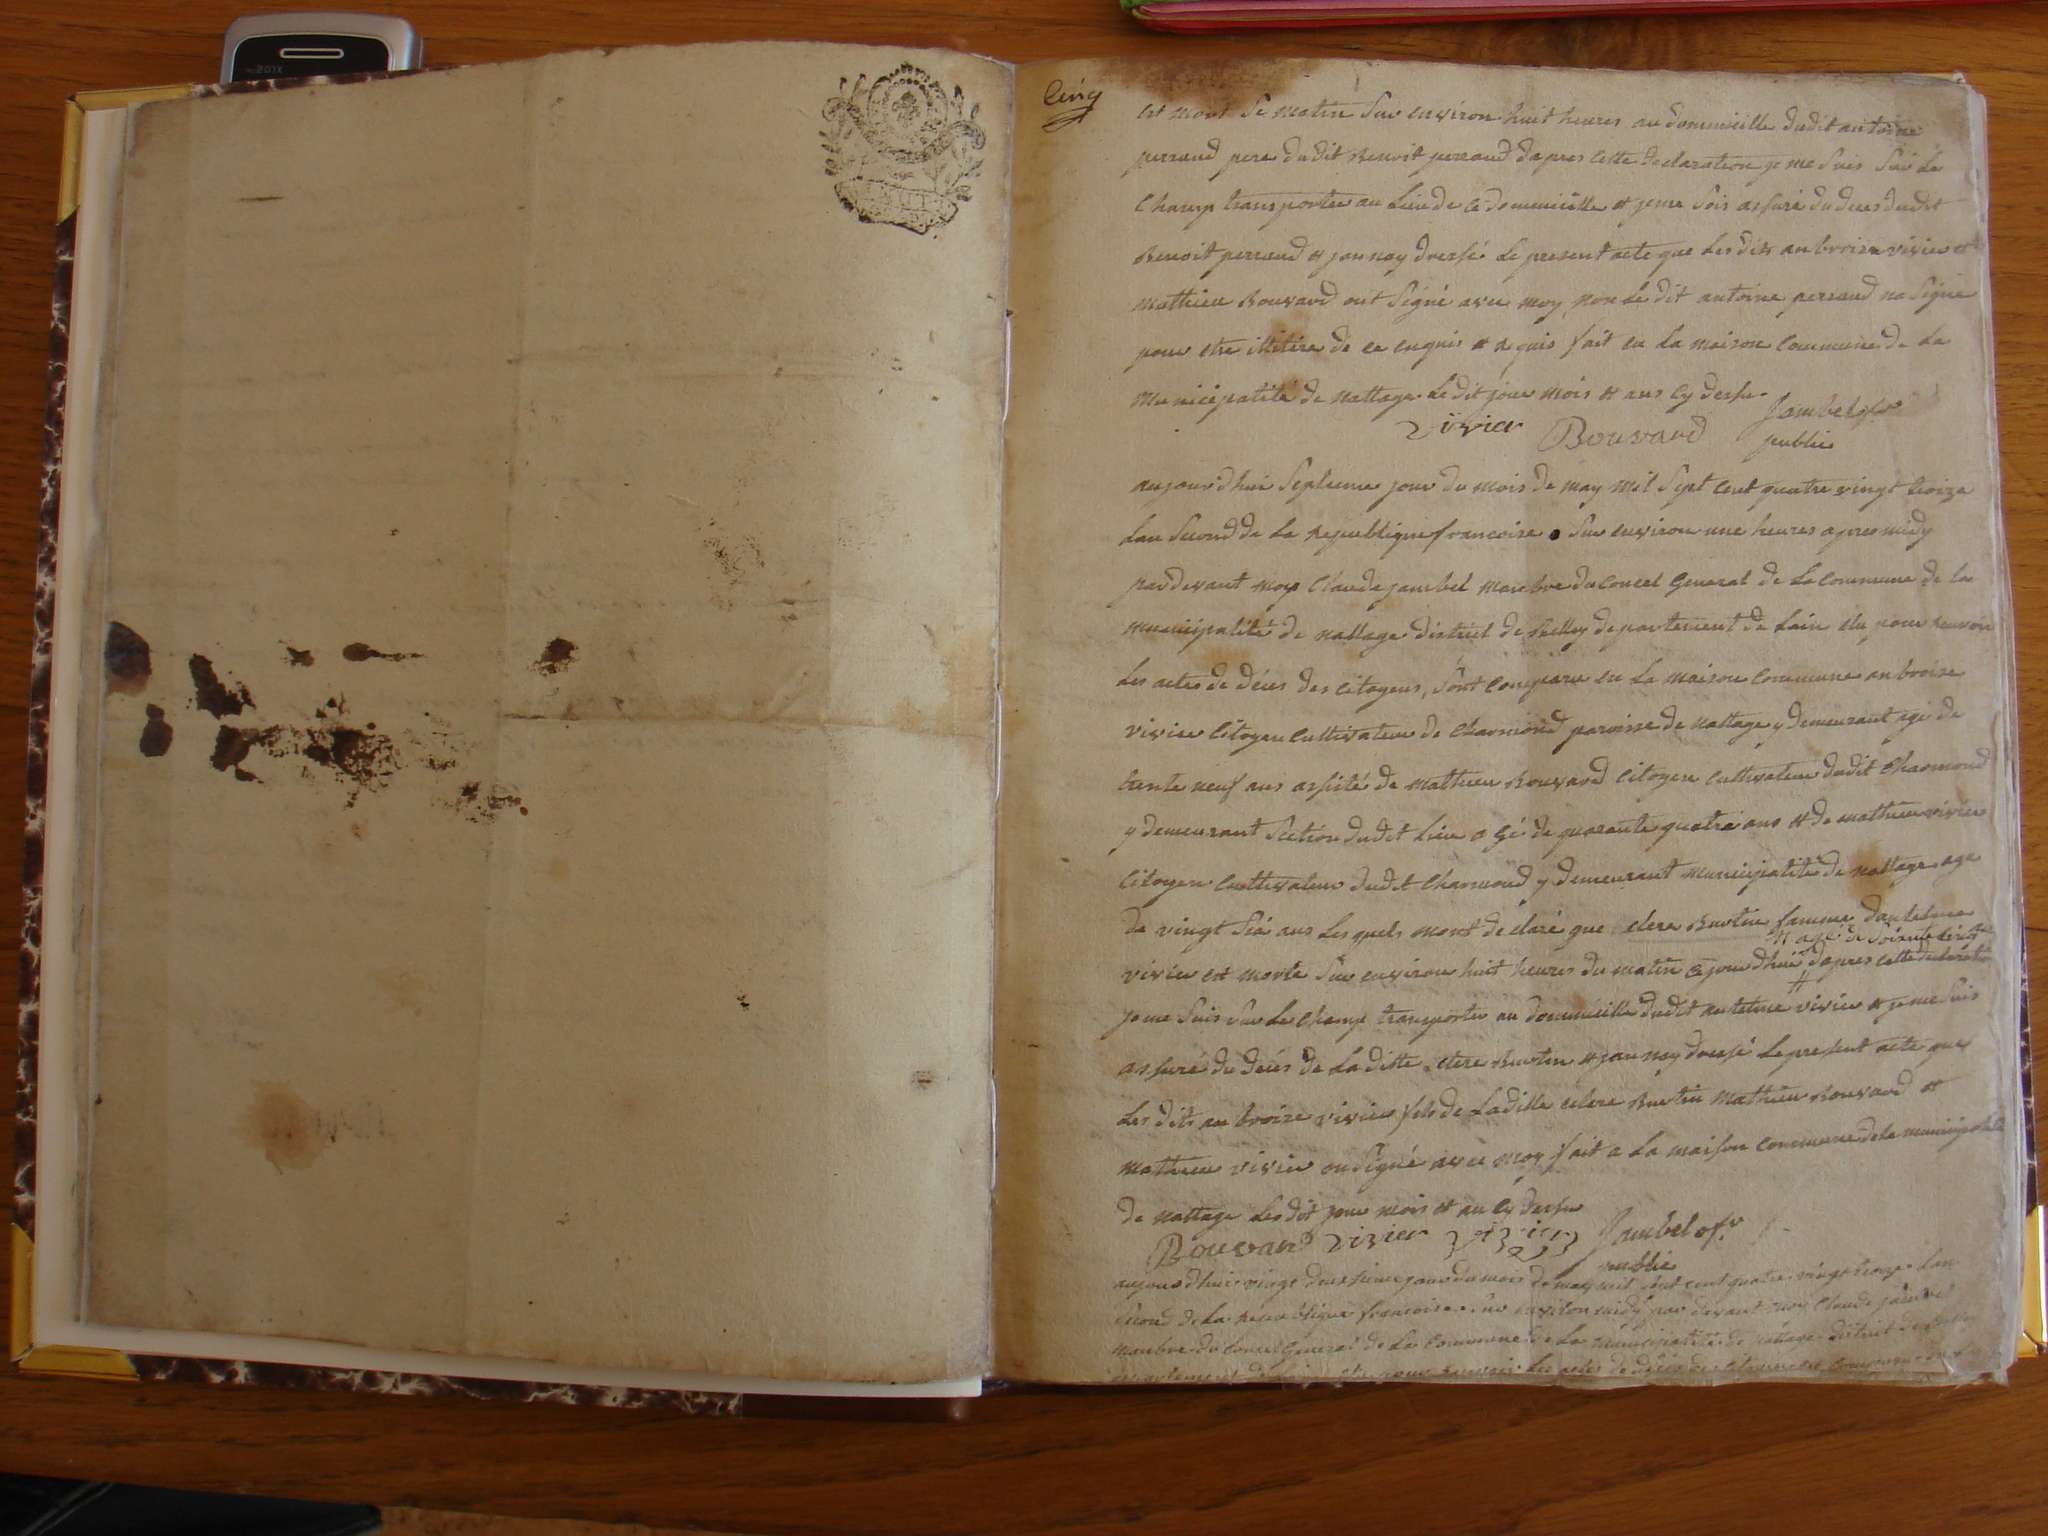 Cinq
est mort se matin sur environ huit heures au dommicille dudit antoine
perraud pere dudit Benoit perraud dapres cette declaration je me suis sur le
champ transporter au lieu de ce dommicille et je me sois assuré du deces dudit
Benoit perraud et jan nay dressé le present acte que les dits anbroize vivier et
mathieu Bouvard ont signé avec moy non le dit antoine perraud na signé
pour etre illitere de ce enquis et requis fait en la maison commune de la
municipalité de nattage ledit jour mois et ans cy dessu
vivier Bouvard Jambel ofr
public
aujourdhui septieme jour du mois de may mil sept cent quatre vingt treize
lan second de la republique francoise sur environ une heures apres midy
pardevant moy claude jambel manbre du concel general de la commune de la
municipalité de nattage district de Belley departement de lain elu pour recevoir
les actes de déces des citoyens, sont conparu en la maison commune anbroise
vivier citoyen cultivateur de charmond paroisse de nattage y demeurant agé de
trente neuf ans assisté de mathieu Bouvard citoyen cultivateur dudit charmond
y demeurant section dudit lieu agé de quarante quatre ans et de mathieu vivier
citoyen cultivateur dudit charmond y demeurant municipalité de nattage age
de vingt six ans les quels mont declaré que clere Burtin famme dantelme
# agé de soixante
vivier est morte sur environ huit heures du matin cejourdhui # dapres cette declaration
je me suis sur le champ transporter au dommicille dudit antelme vivier et je me suis
assuré du déces de la ditte clere Burtin et jan nay dressé le present acte que
les dits anbroize vivier fils de laditte clere Burtin mathieu Bouvard et
mathieu vivier on signé avec moy fait a la maison commune de la municipalité
de nattage les dit jour mois et an cy dessu
Bouvard vivier vivier Jambel ofr
public
aujourdhui vingt deuxsieme jour du mois de may mil sept cent quatre vingt treize lan
second de la republique francoise sur environ midy par devant moy claude jambel
manbre du concel general de la commune de la municipalité de nattage district de Belley
departement de lain elu pour recevoir les actes de déces des citoyens est conparu